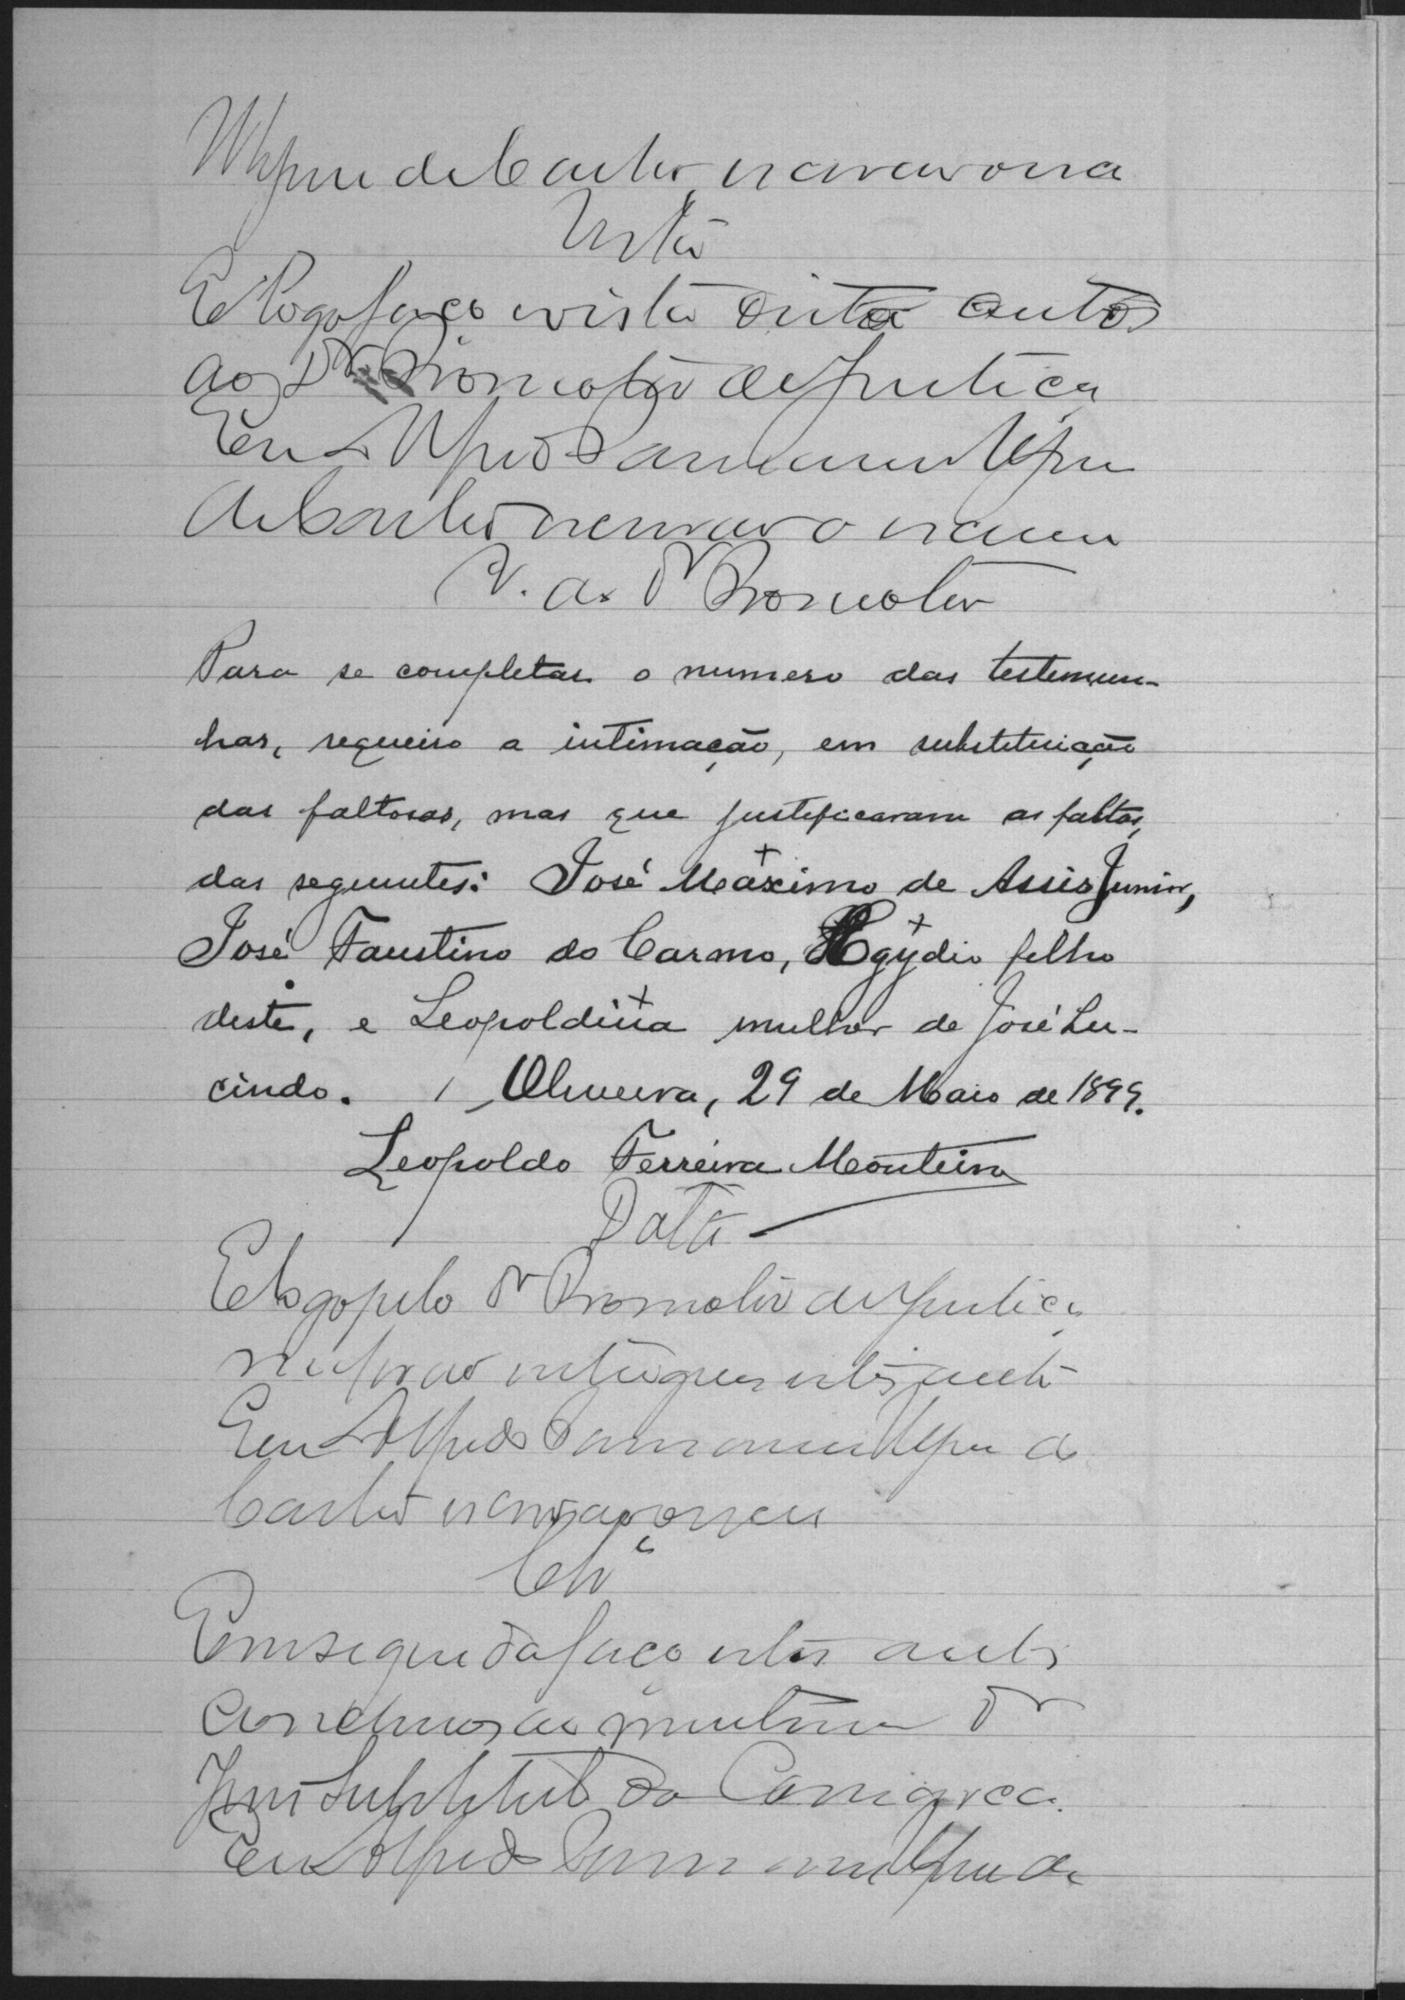 de Castro escrivão
Vista
E logo faço vista destes autos
ao Dr. Promotor de Justiça
Eu Alfredo
de Castro escrivão
V. ao Dr Promotor
Para se completar o numero das testemun-
has, requeiro a intimação, em substituição
das faltosas, mas que justificaram as faltas,
das seguintes: José Maximo de Assis Junior,
José Faustino do Carmo, Egydio filho
deste, e Leopoldina mulher de José Lu-
cindo. Oliveira, 29 de Maio de 1899.
Leopoldo Ferreira Monteiro
Data
E logo pelo Dr Promotor de Justiça
me forão entregues estes autos
Eu Alfredo de
Castro escrivão
Clr
Em seguida faço estes autos
conclusos ao Dr
Juiz Substituto da Comarca.
Eu Alfredo de